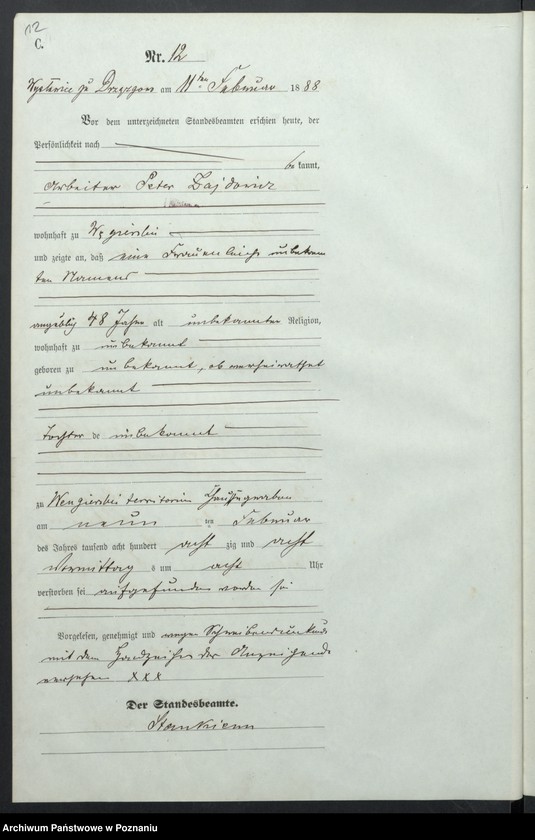 12
C.
Nr. 12
zu Drzązgowo am 11ten Februar 1888
Vor dem unterzeichneten Standesbeamten erschien heute, der
Persönlichkeit nach
bekannt,
Arbeiter Peter
wohnhaft zu Węgierskie
und zeigte an, daß eine Frauenleiche unbekann
ten Namens
angeblich 48 Jahre alt unbekannter Religion,
wohnhaft zu unbekannt
geboren zu unbekannt, ob verheirathet
unbekannt
Tochter de unbekannt
zu Wengierskie territorium Chausseegraben
am neun ten Februar
des Jahres tausend acht hundert acht zig und acht
Vormittag s um acht Uhr
verstorben sei aufgefunden worden sei
Vorgelesen, genehmigt und wegen Schreibensunkunde
mit dem Handzeichen der Anzeigende
versehen xxx
Der Standesbeamte.
Archiwum Państwowe w Poznaniu